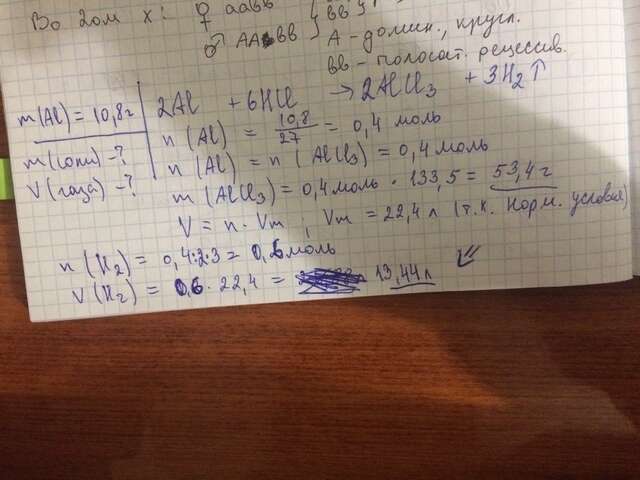 Во 2ом х: ♀ аавв } вв
♂ ААвв } А - домин., кругл.
вв - полосат. рецессив.
m(Al) = 10,8г
m(соли) - ?
V(газа) - ?
2Al + 6HCl → 2AlCl₃ + 3H₂↑
n(Al) = 10,8/27 = 0,4 моль
n(Al) = n(AlCl₃) = 0,4 моль
m(AlCl₃) = 0,4 моль · 133,5 = 53,4 г
V = n · Vm, Vm = 22,4 л (т.к. норм. условия)
n(H₂) = 0,4:2·3 = 0,6 моль
V(H₂) = 0,6 · 22,4 = 13,44 л